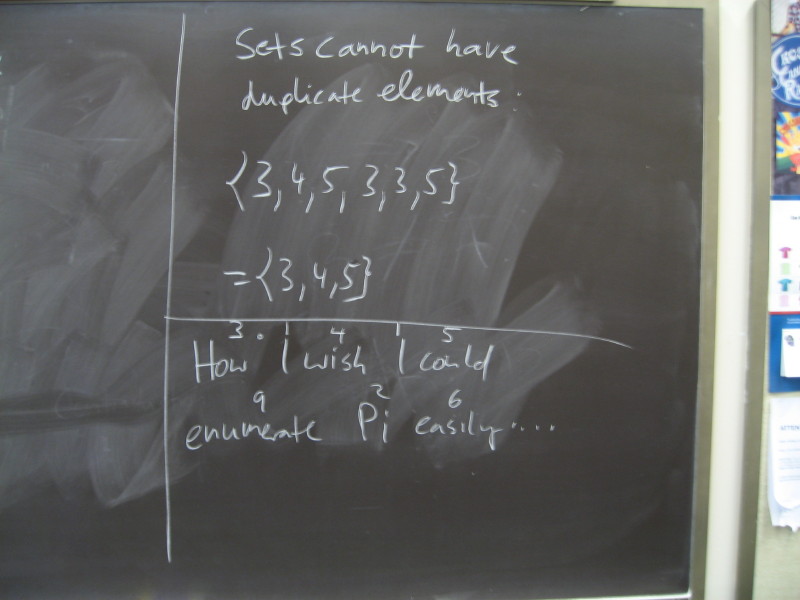 Sets cannot have
duplicate elements:
{3,4,5,3,3,5}
={3,4,5}
3 . 1 4 1 5
How I wish I could
9 2 6
enumerate Pi easily....